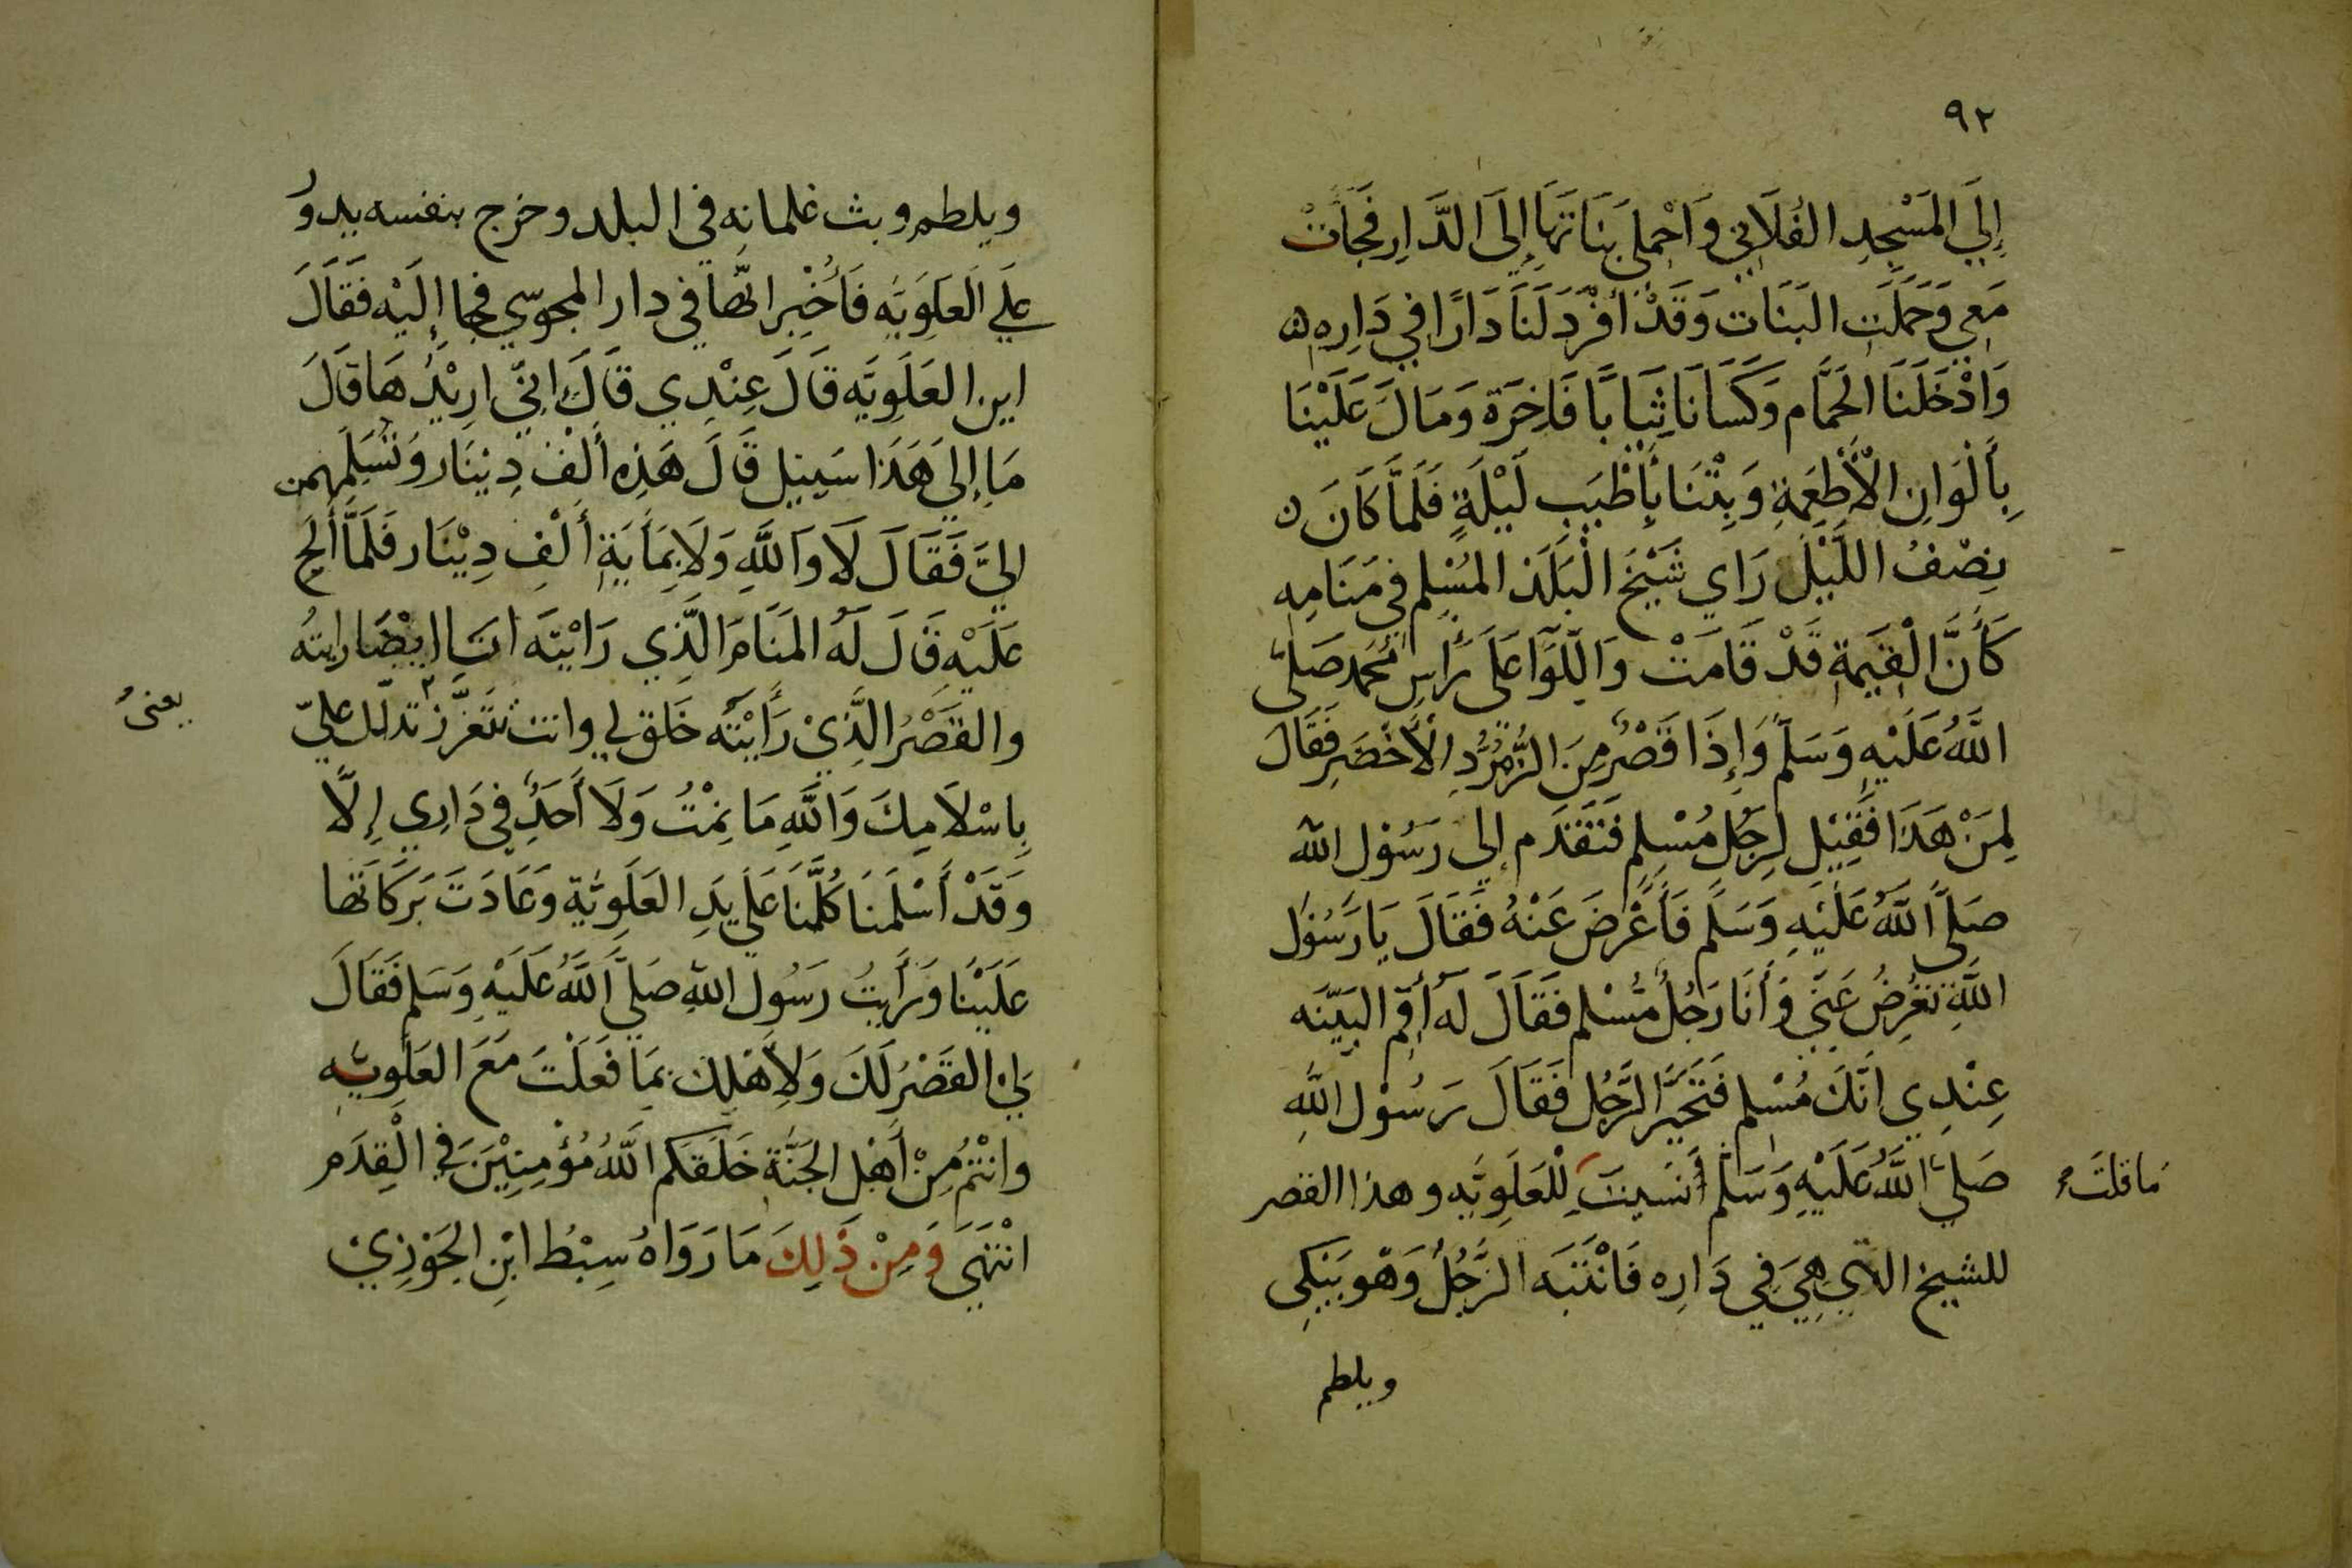 ٩٢
إِلَي المَسْجِدِ الفُلَانِي وَاحْمِلي بَنَاتَهَا إِلَى الدَّارِ فَجَأَتْ
مَعِي وَحَمَلَتِ البَنَات وَقَدْ أَفْرَدَ لَنَا دَارًا فِي دَارِه
وَادْخَلَنَا الحَمَّام وَكَسَانَا ثِيَابًا فَاخِرَة وَمَالَ عَلَيْنَا
بِأَلْوَانِ الأَطْعِمَةِ وَبِتْنَا بِأَطْيَبِ لَيْلَةٍ فَلَمَّا كَانَ
نِصْفُ اللَّيْلِ رَاي شَيْخَ الْبَلَد المُسْلِم فِي مَنَامِهِ
كَأَنَّ الْقِيَمَةِ قَدْ قَامَتْ وَاللِّوَآ عَلَى رَأسِ مُحَمد صَلَّى
اللهُ عَلَيْهِ وَسَلَّم وَإِذَا قَصْرٌ مِنَ الزُّمُرُّدِ الأَخْضَرِ فَقَالَ
لِمَنْ هَذَا فَقِيْلَ لِرَجُلٍ مُسْلِمٍ فَتَقَدَّم إلى رَسُوْل الله
صَلَّى اللَّهُ عَلَيْهِ وَسَلَّم فَأَعْرَضَ عَنْهُ فَقَالَ يَا رَسُوْلَ
اللَّهِ تُعْرِضُ عَنِّي وَأَنَا رَجُلٌ مُسْلم فَقَالَ لَه أَقِمِ البَيِّنَه
عِنْدِي انَّكَ مُسْلم فَتَحَيَّرَ الرَّجُل فَقَالَ رَسُوْل اللهِ
صَلَّي اللَّهُ عَلَيْهِ وَسَلَّم أَنَسِيتَ لِلْعَلَوِيَّه وهذا القصر
مَا قلتَ
للشيخ الذي هِيَ فِي دَارِه فَانْتَبَه الرَّجُلُ وَهْوَ يَبْكِي
ويلطم
ويلطم وبث غلمانه في البلد وخرج بنفسه يدورُ
عَلَي العَلَوِيَّه فَأُخْبِر انَّها في دار المجوسي فجا إِلَيْه فَقَالَ
اين العَلَوِيَّه قَالَ عِنْدِي قَالَ انِّي ارِيْدُهَا قَالَ
مَا إِلَى هَذَا سَبِيل قَالَ هَذِه أَلْفُ دِيْنَار وَتُسَلِّمهمن
اليَّ فَقَالَ لَا وَاللَّهِ وَلَا بِمَايَةِ أَلْفِ دِيْنَار فَلَمَّا أَلَحَ
عَلَيْه قَالَ لَهُ المَنَام الَّذِي رَايْتَه انَا ايْضًا رايتُه
والقَصْرُ الَّذِيْ رَأَيْتَه خَلق لي وانت تَتَعَزَّز تدلَّل عليّ
يعنى
بِاسْلاَمِكَ وَاللَّهِ مَا نِمْتُ وَلَا أَحَدٌ فِي دَارِي إِلَّا
وَقَدْ أَسْلَمنَا كُلّنَا عَلَي يَدِ العَلَوِيَّة وَعَادَتَ بَرَكَاتها
عَلَيْنَا وَرَأَيتُ رَسُول اللهِ صَلَّي اللَّهُ عَلَيْهِ وَسَلم فَقَالَ
لِي القَصْرُ لَكَ وَلِأَهْلِك بِمَا فَعَلْتَ مَعَ العَلَوِيَّه
وانْتُم مِنْ أَهْلِ الجَنَّة خَلَقَكم اللهُ مُؤْمِنِيْنَ فِي الْقِدَم
انْتَهَي وَمِنْ ذَلِكَ مَا رَوَاهُ سِبْطُ ابْنِ الجَوْزِيْ